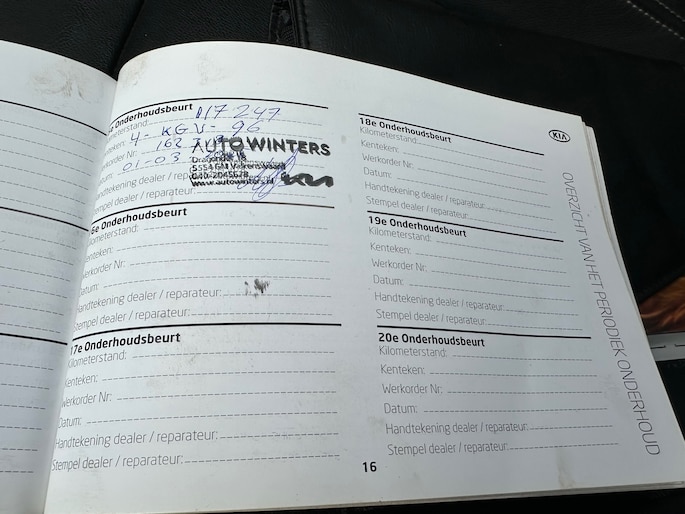 Onderhoudsbeurt 117 247
Kilometerstand:
Kenteken: 4-KGV-96
Werkorder Nr: 162
Datum: 01-03
Handtekening dealer / reparateur:
Stempel dealer / reparateur:
AUTO WINTERS
5554 GM Valkenswaard
040-2045678
www.autowinters.nl
6e Onderhoudsbeurt
Kilometerstand:
Kenteken:
Werkorder Nr:
Datum:
Handtekening dealer / reparateur:
Stempel dealer / reparateur:
17e Onderhoudsbeurt
Kilometerstand:
Kenteken:
Werkorder Nr:
Datum:
Handtekening dealer / reparateur:
Stempel dealer / reparateur:
18e Onderhoudsbeurt
Kilometerstand:
Kenteken:
Werkorder Nr:
Datum:
Handtekening dealer / reparateur:
Stempel dealer / reparateur:
19e Onderhoudsbeurt
Kilometerstand:
Kenteken:
Werkorder Nr:
Datum:
Handtekening dealer / reparateur:
Stempel dealer / reparateur:
20e Onderhoudsbeurt
Kilometerstand:
Kenteken:
Werkorder Nr:
Datum:
Handtekening dealer / reparateur:
Stempel dealer / reparateur:
16
KIA
OVERZICHT VAN HET PERIODIEK ONDERHOUD